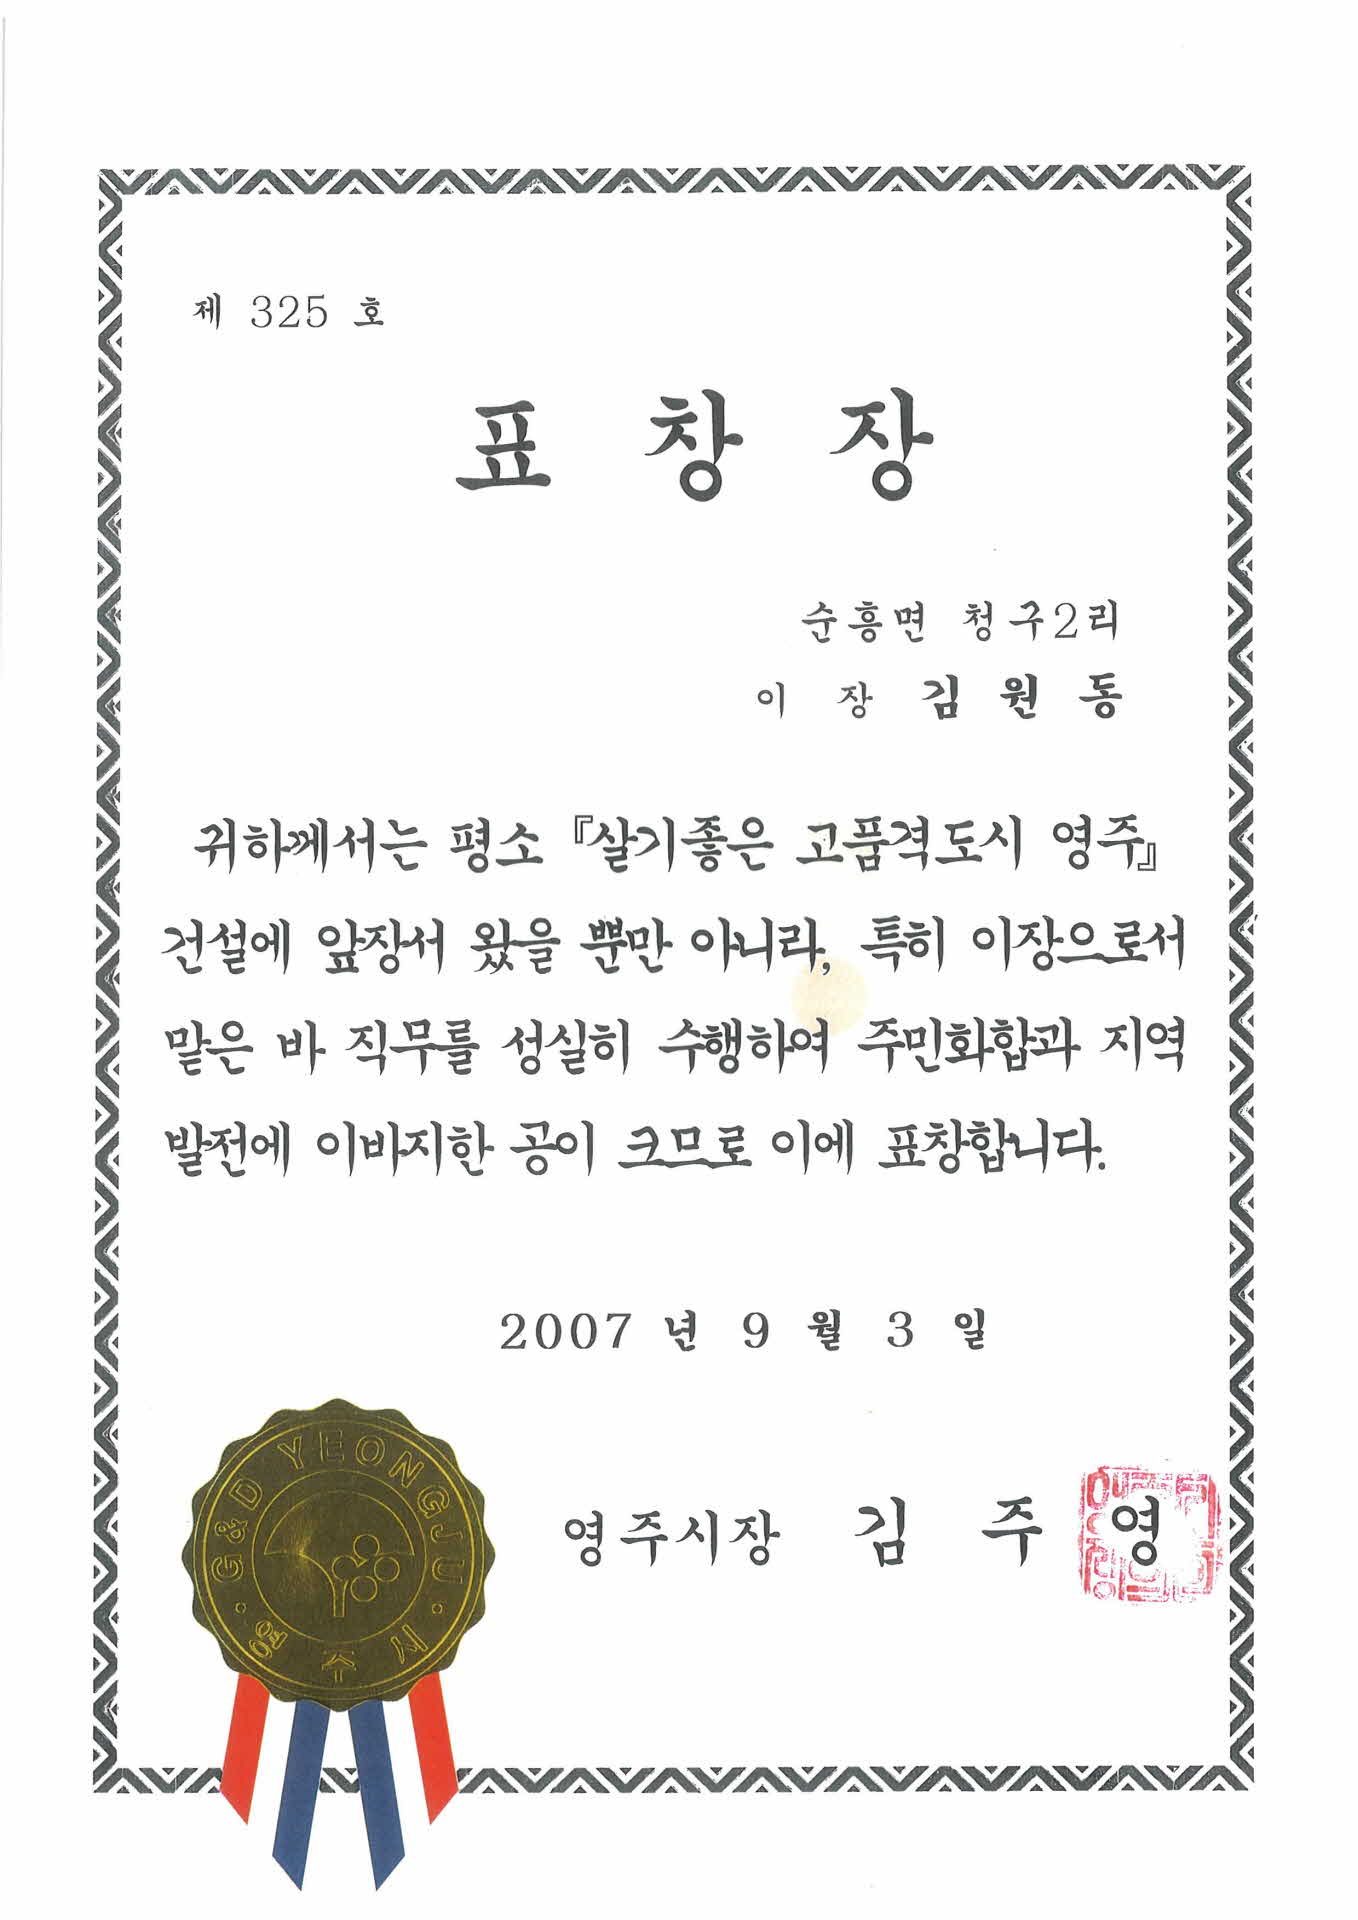 제 325 호
표 창 장
순흥면 청구2리
이 장 김 원 동
귀하께서는 평소 『살기좋은 고품격도시 영주』
건설에 앞장서 왔을 뿐만 아니라, 특히 이장으로서
맡은 바 직무를 성실히 수행하여 주민화합과 지역
발전에 이바지한 공이 크므로 이에 표창합니다.
2007 년 9 월 3 일
영주시장 김 주 영
G&D YEONGJU
영 주 시